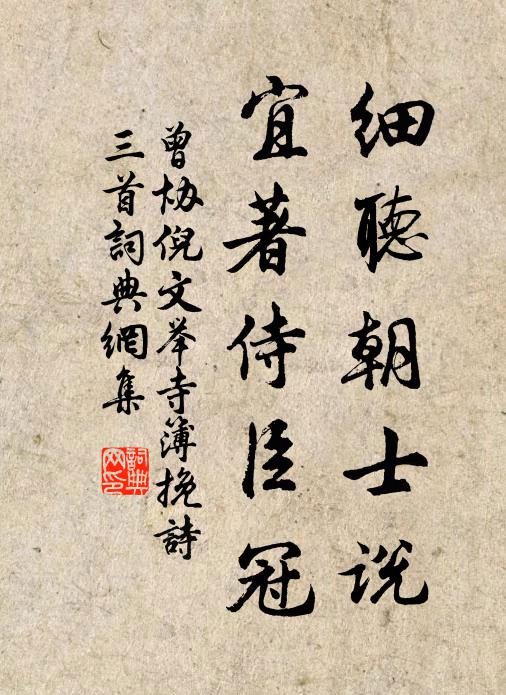 細聽朝士説
宜著侍臣冠
曾协倪文举寺簿挽詩
三首詞典網集
詞典
网印